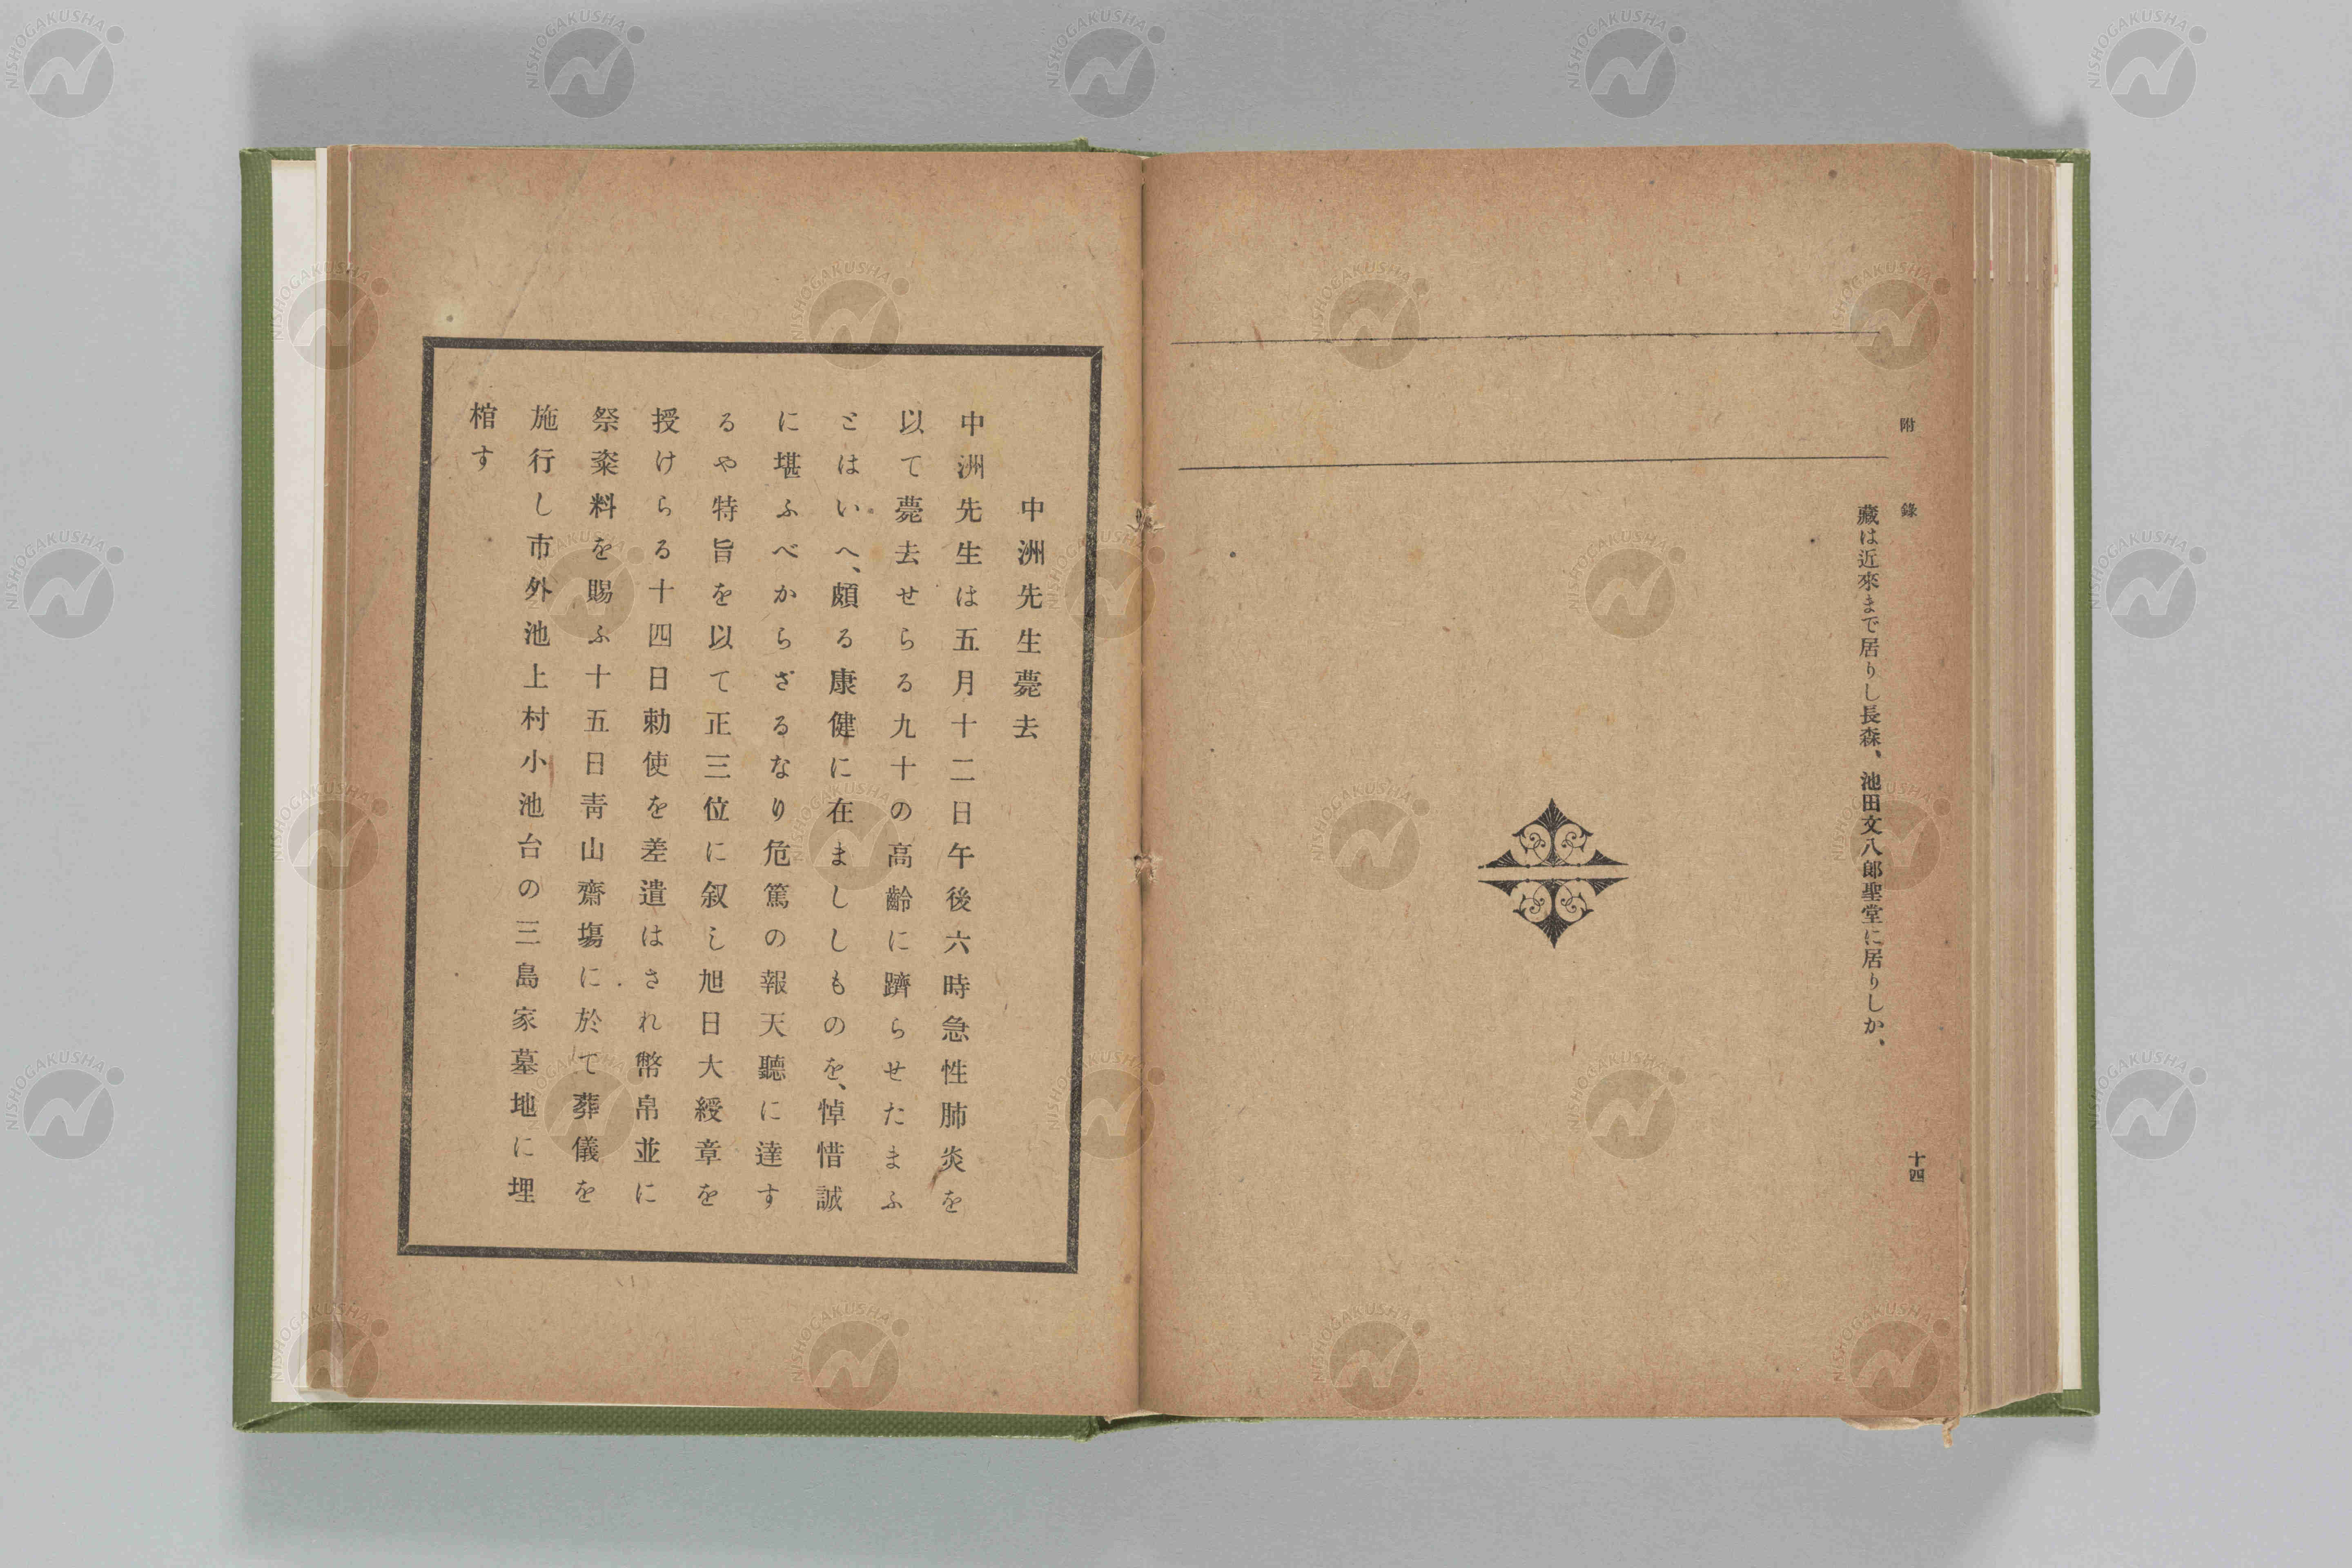 附錄
藏は近來まで居りし長森、池田文八郎聖堂に居りしか、
十四
中洲先生薨去
中洲先生は五月十二日午後六時急性肺炎を
以て薨去せらる九十の高齡に躋らせたまふ
とはいへ、頗る康健に在まししものを、悼惜誠
に堪ふべからざるなり危篤の報天聽に達す
るや特旨を以て正三位に叙し旭日大綬章を
授けらる十四日勅使を差遣はされ幣帛並に
祭粢料を賜ふ十五日靑山齋塲に於て葬儀を
施行し市外池上村小池台の三島家墓地に埋
棺す
NISHOGAKUSHA